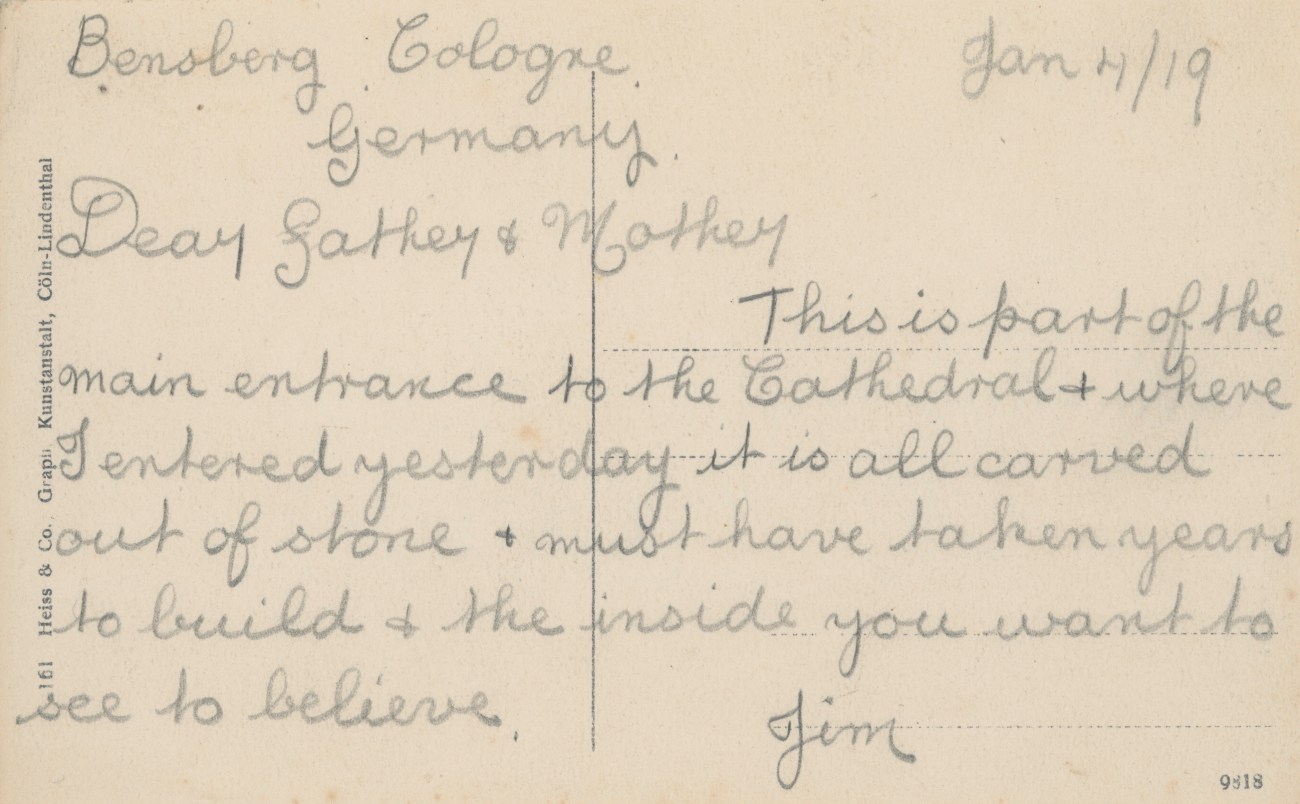 Bensberg Cologne Jan 4/19
Germany.
Dear Father & Mother
This is part of the
main entrance to the Cathedral & where
I entered yesterday it is all carved
out of stone & must have taken years
to build & the inside you want to
see to believe.
Jim
161 Heiss & Co. Graph. Kunstanstalt, Cöln-Lindenthal
9818